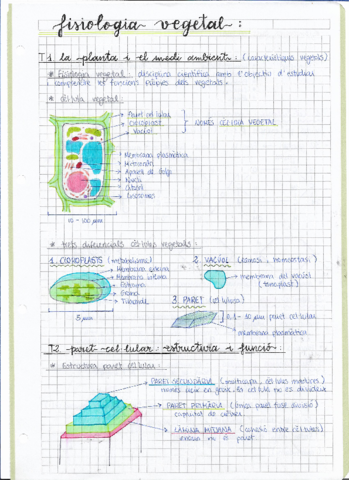 fisiologia vegetal :
T1 la planta i el medi ambient : (característiques vegetals)
* Fisiologia vegetal : disciplina científica amb l'objectiu d'estudiar
comprendre les funcions dels vegetals.
* cèl·lula vegetal :
Paret cel·lular
Cloroplast
Vacúol
NOMÉS CÈL·LULA VEGETAL
Membrana plasmàtica
Mitocondri
Aparell de Golgi
Nucli
Citosol
10 - 100 µm
* trets diferencials cèl·lules vegetals :
1. CLOROPLASTS (metabolisme)
Membrana externa
Membrana interna
Estroma
Grana
Tilacoide
5 µm
2. VACÚOL (osmosi, homeostasi)
membrana del vacúol
(tonoplast)
3. PARET (cel·lulosa)
paret cel·lular
membrana plasmàtica
T2 paret cel·lular : estructura i funció :
* Estructura paret cel·lular :
PARET SECUNDÀRIA (cèl·lules madures)
només
PARET PRIMÀRIA (única paret fins divisió)
capacitat de créixer
LÀMINA MITJANA (cohesió entre cèl·lules)
encara no és paret